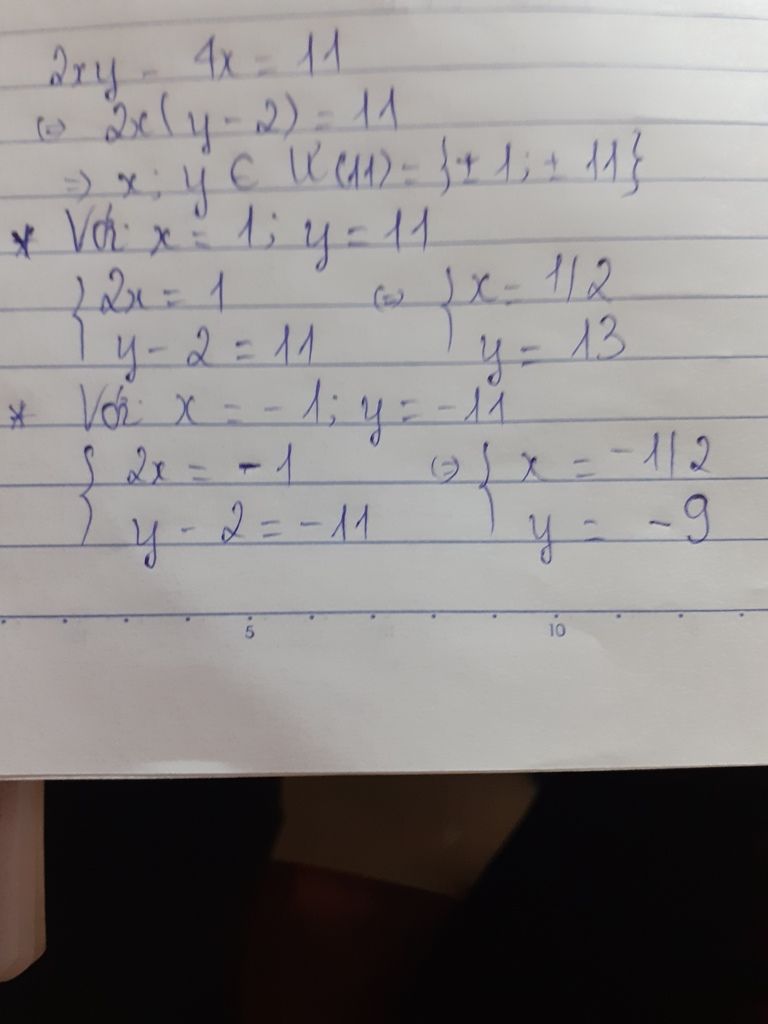 2xy - 4x = 11
<=> 2x(y - 2) = 11
=> x; y ∈ Ư(11) = {± 1; ± 11}
* Với x = 1; y = 11
{ 2x = 1 <=> { x = 1/2
y - 2 = 11 y = 13
* Với x = -1; y = -11
{ 2x = -1 <=> { x = -1/2
y - 2 = -11 y = -9
5 10